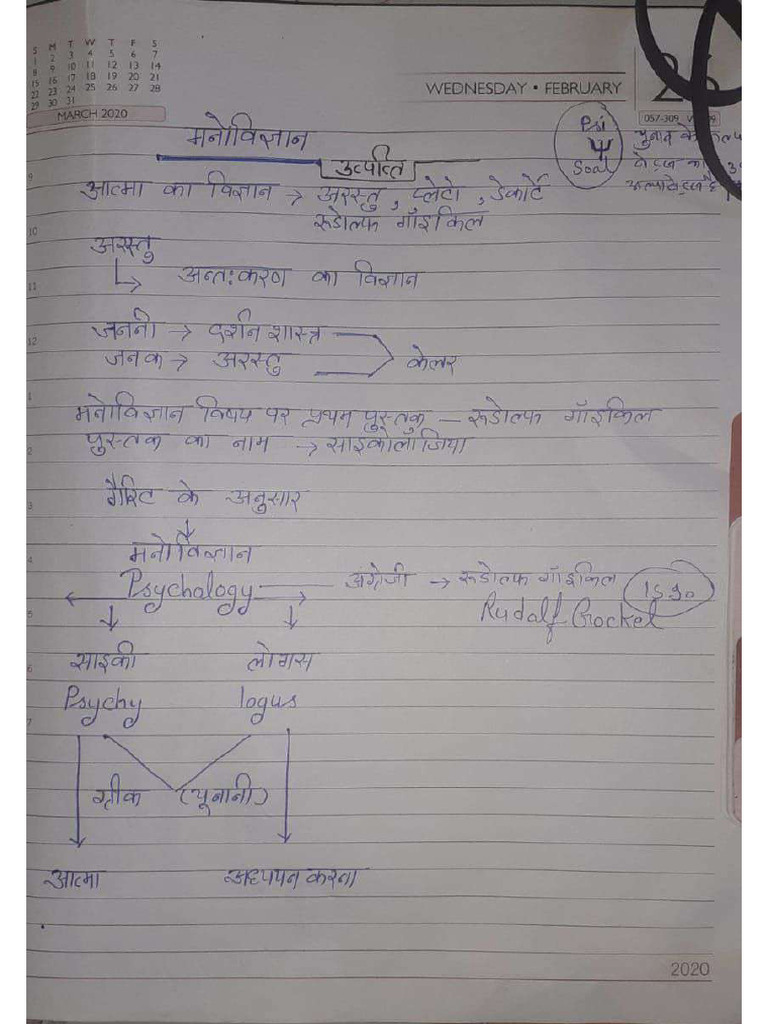 S M T W T F S
1 2 3 4 5 6 7
8 9 10 11 12 13 14
15 16 17 18 19 20 21
22 23 24 25 26 27 28
29 30 31
MARCH 2020
WEDNESDAY • FEBRUARY
26
057-309
Psi
Ψ
Soal
चुनाव
मनोविज्ञान
उत्पत्ति
आत्मा का विज्ञान → अरस्तु, प्लेटो, डेकार्टे
रूडोल्फ गॉइकिल
अरस्तु
अन्त:करण का विज्ञान
जननी → दर्शन शास्त्र
जनक → अरस्तु
केलर
मनोविज्ञान विषय पर प्रथम पुस्तक — रूडोल्फ गॉइकिल
पुस्तक का नाम → साइकोलॉजिया
गैरिट के अनुसार
मनोविज्ञान
Psychology — अंग्रेजी → रूडोल्फ गॉइकिल 1590
Rudolf Gockel
साइकी लोगस
Psychy logus
ग्रीक (यूनानी)
आत्मा अध्ययन करना
9
10
11
12
1
2
3
4
5
6
7
2020